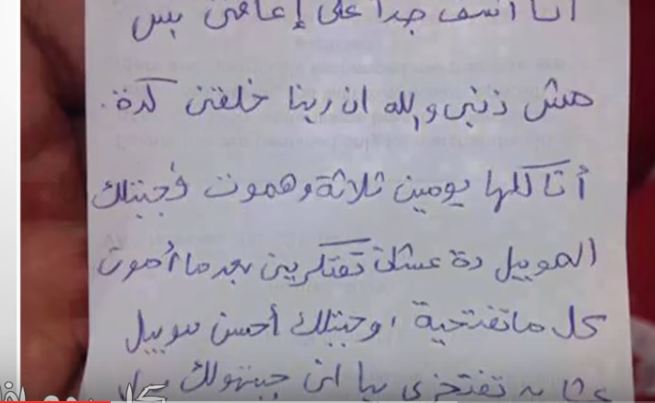 أنا آسف جداً على إعاقتى بس
مش ذنبى والله ان ربنا خلقنى كدة.
أنا كلها يومين ثلاثة وهموت فجبتلك
الموبيل دة عشان تفتكرينى بعد ما أموت
كل ماتفتحية، وجبتلك أحسن موبيل
عشان تفتخرى بيا انى جبتهولك